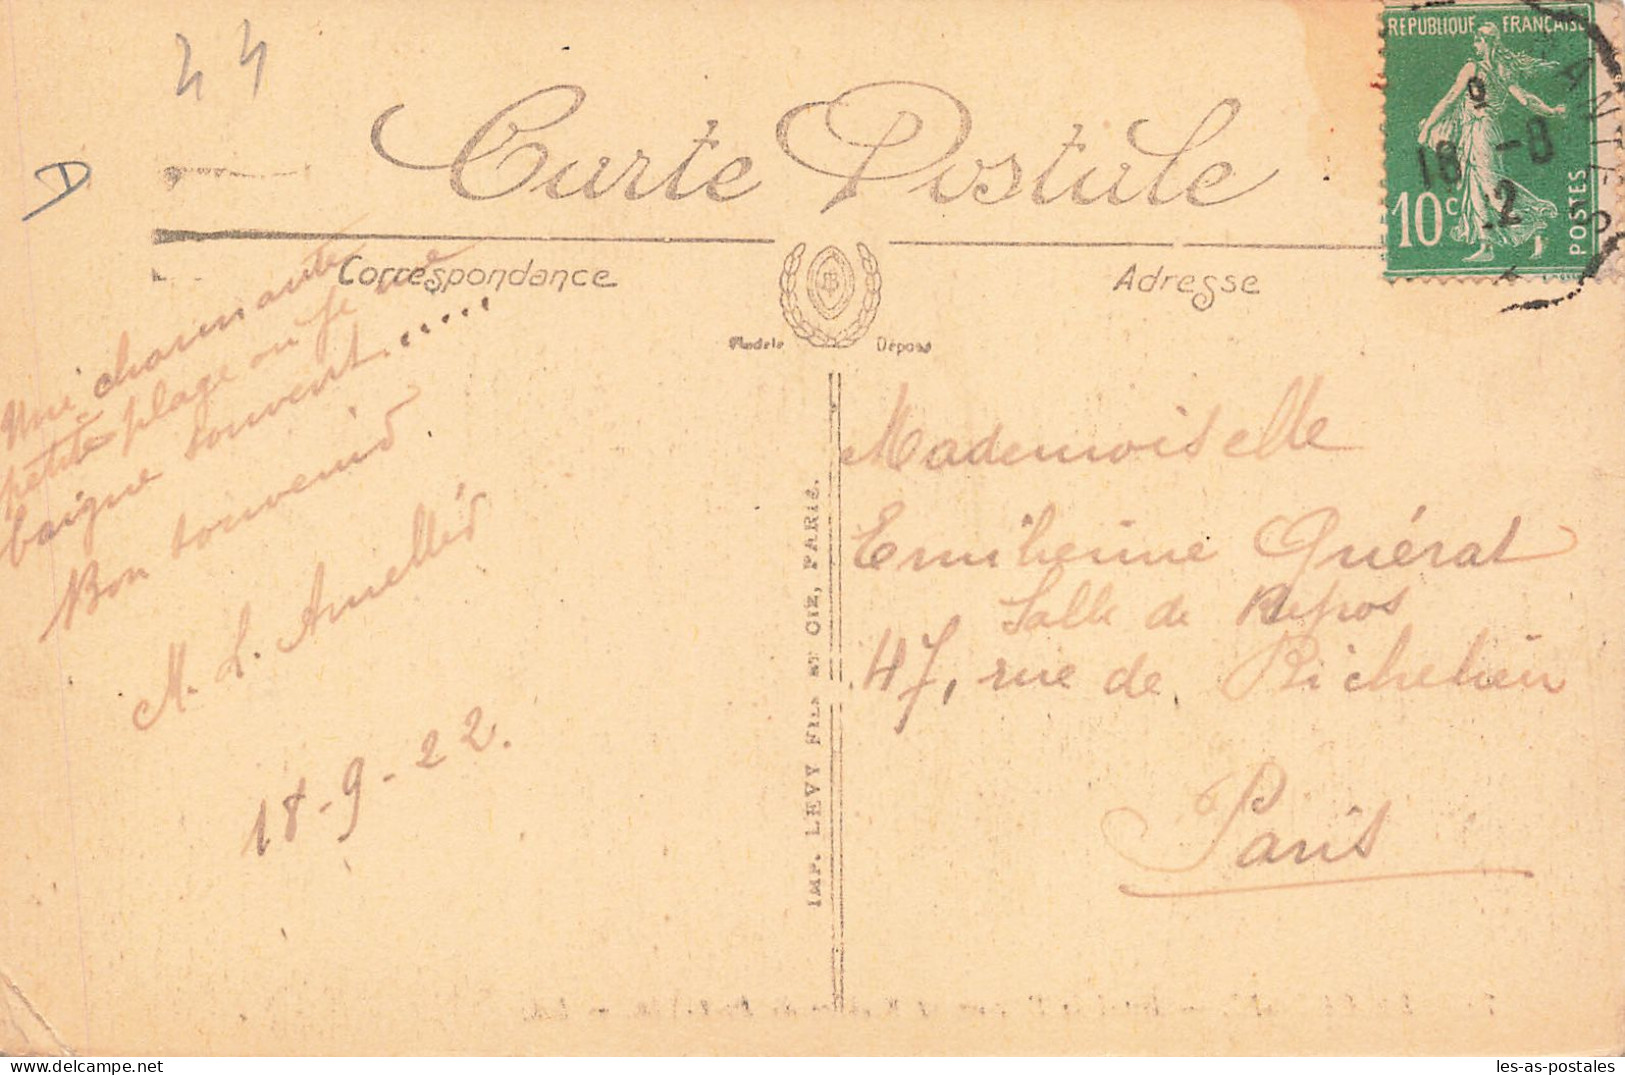 44
D
Carte Postale
Correspondance
Adresse
Modèle Déposé
REPUBLIQUE FRANÇAISE
10c
POSTES
18 -9
Une charmante
petite plage où je me
baigne souvent.....
Bon souvenir
M. L.
18-9-22.
IMP. LEVY FILS ET CIE, PARIS.
Mademoiselle
Emilienne Guérat
Salle de Repos
47, rue de Richelieu
Paris
les-as-postales